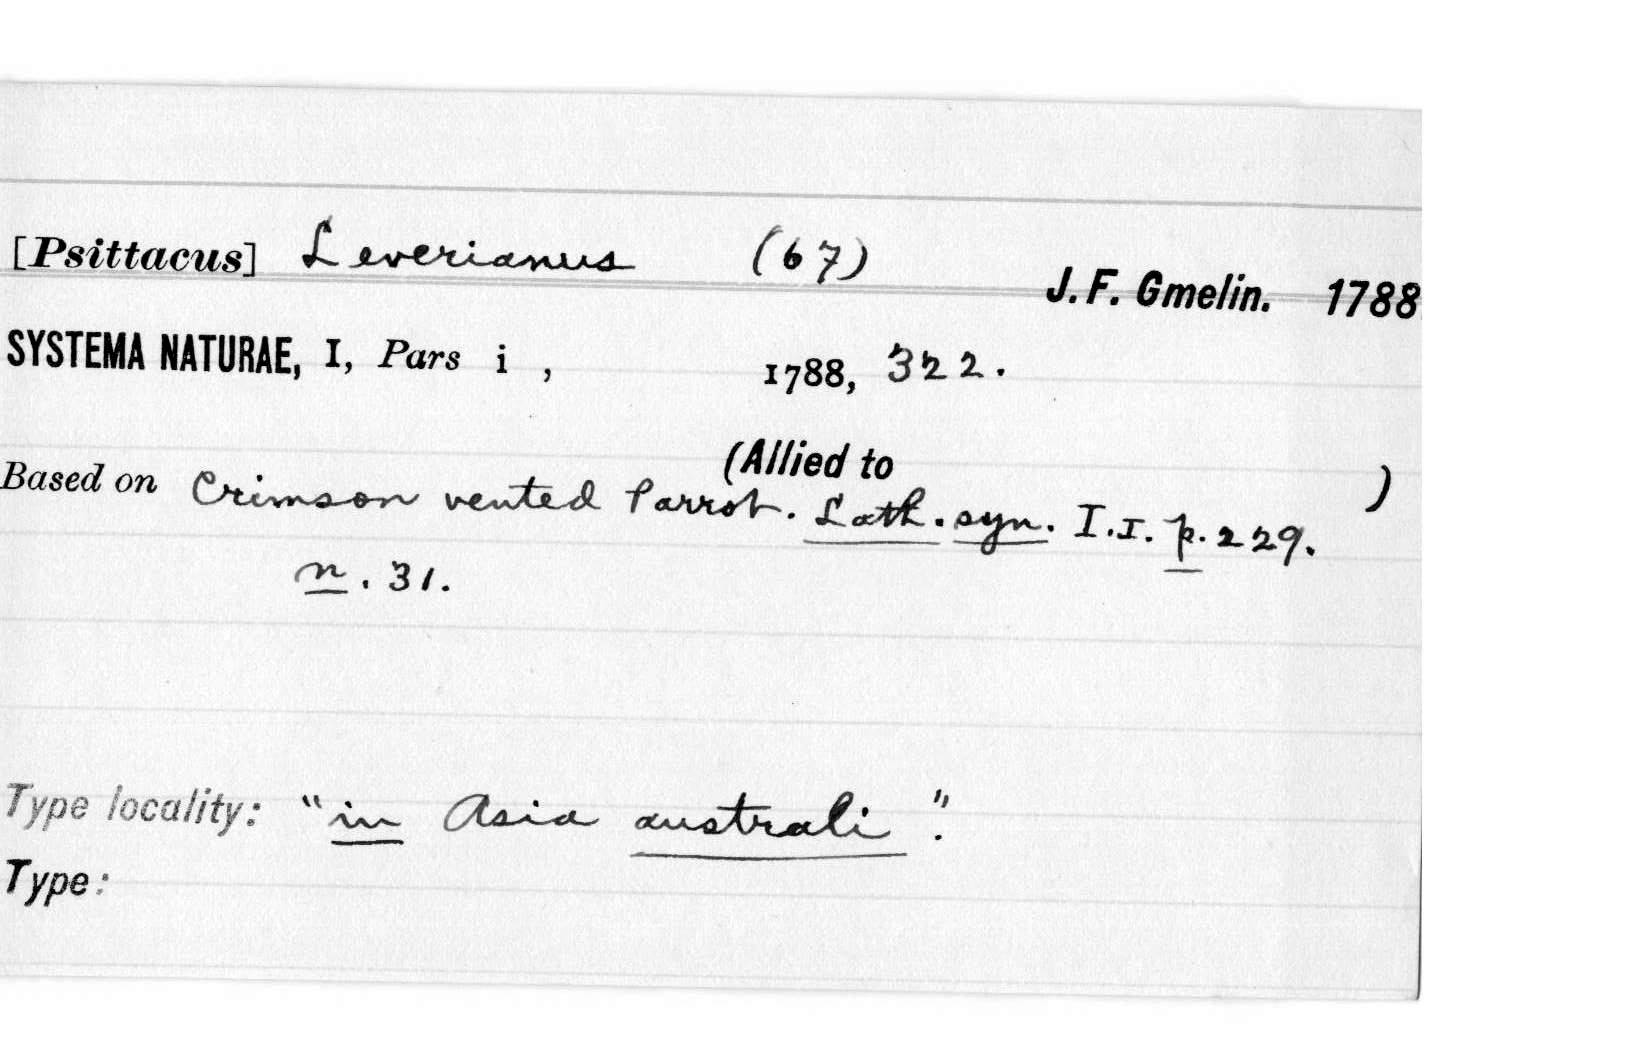 [Psittacus] Leverianus (67)
J. F. Gmelin. 1788
SYSTEMA NATURAE, I, Pars i , 1788, 322.
(Allied to )
Based on Crimson vented Parrot. Lath. syn. I.I. p. 229.
n. 31.
Type locality: "in Asia australi".
Type: